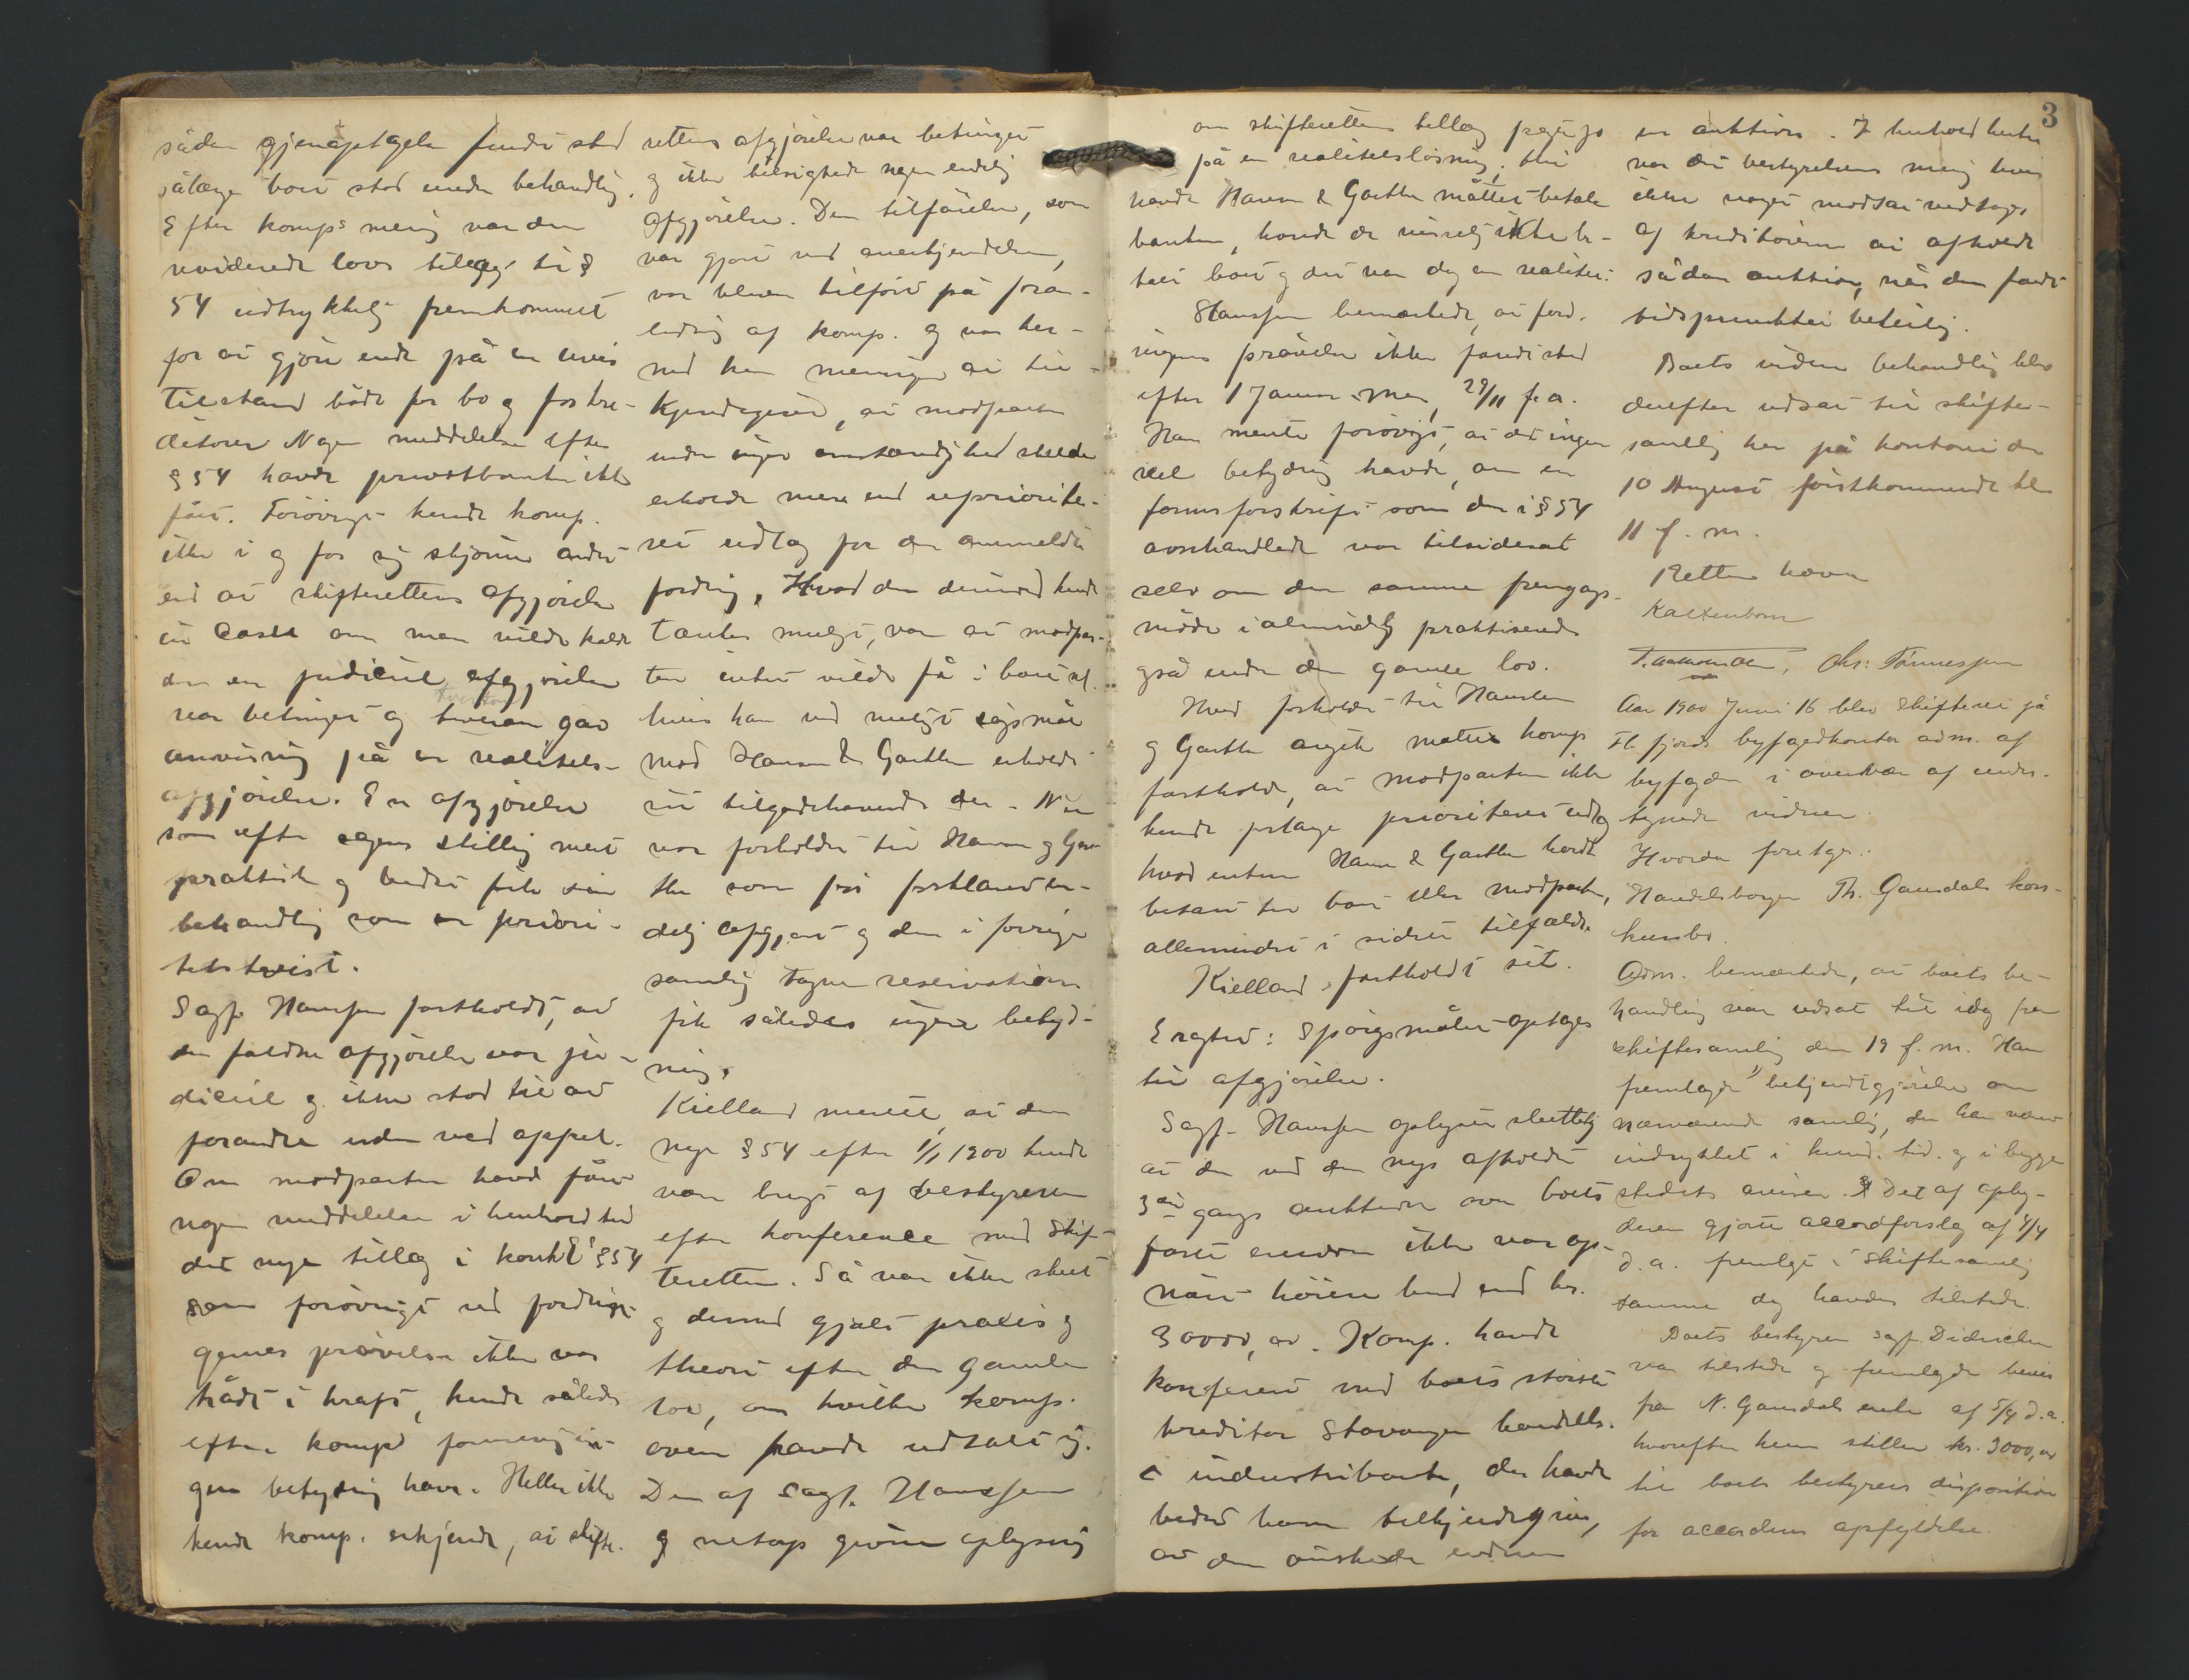 sådan gjenoptagelse fandt sted
sålænge boet stod under behandlig.
Efter komps menig var den
reviderede lovs tillæg til §
54 udtrykkelig fremkommet
for at gjøre ende på en uvis
tilstand både for bo og for kre-
ditorer. Nogen meddelelse efter
§ 54 havde privatbanken ikke
fåt. Forøvrigt kunde komp.
ikke i og for sig skjønne andet
end at skifterettens afgjørelse
in casu om man vilde kalde
den en judiciel afgjørelse
var betinget og tvertom gav
anvisning på en realitets-
afgjørelse. En afgjørelse
som efter sagens stillig mest
praktisk og bedst fik sin
behandlig som en priori-
tetstvist.
Sagf. Hanssen fastholdt, at
den faldne afgjørelse var ju-
diciel og ikke stod til at
forandre uden ved appel.
Om modparten havde fåt
nogen meddelelse i henhold til
det nye tillæg i konkl § 54
som forøvrigt ved fordrin-
gernes prøvelse ikke var
trådt i kraft, kunde således
efter komps formenig in-
gen betydnig have. Heller ikke
kunde komp. erkjende, at skifte-
rettens afgjørelse var betinget
og ikke tilsigtede nogen endelig
afgjørelse. Den tilførelse, som
var gjort ved anerkjendelsen,
var bleven tilført på foran-
lednig af komp. og var her-
med kun meningen at til-
kjendegive, at modparten
under ingen omstændighed skulde
erholde mere end uprioite-
ret udlæg for den anmeldte
fordrig. Hvad der derimod kunde
tænkes muligt, var at modpar-
ten intet vilde få i boet
hvis han ved muligt søgsmål
mod Hansen & Garthe erholdt
sit tilgodehavende der. Nu
var forholdet til Hansen og Gar-
the som før forklaret en-
delig afgjort og den i forrige
samlig tagne reservation
fik således ingen betyd-
nig.
Kielland mente, at den
nye § 54 efter 1/1 1900 kunde
være brugt af bestyreren
efter konference med skif-
teretten. Så var ikke skeet
og dermed gjaldt praxis og
theori efter den gamle
lov, om hvilken komp.
oven havde udtalt sig.
Den af Sagf. Hanssen
og netop givne oplysnig
om skifterettens tillæg peget jo
på en realitetsløsnig; thi
havde Hansen & Garthe måttet betale
banken, havde de rimelig ikke be-
talt boet og det var dog en realitet.
Hanssen bemærkede, at ford-
ringens prøvelse ikke fandt sted
efter 1 Januar men 29/11 f. a.
Han mente forøvrigt, at det ingen
reel betydnig havde, om en
formsforskrift som den i § 54
omhandlede var tilsidesat
selv om den samme fremgangs-
måde i almindelig praktiseredes
også under den gamle lov.
Med forholdet til Hansen
og Garthe angik måtte komp
fastholde, at modparten ikke
kunde forlange prioriteret udlæg
hvad enten Hansen & Garthe havde
betalt til boet eller modparten,
allermindst i sidste tilfælde.
Kielland fastholdt sit.
Eragted: Spørgsmålet optages
til afgjørelse.
Sagf. Hanssen oplyste sluttelig
at der ved den nys afholdte
3die gangs auktion over boets
faste eiendom ikke var op-
nået høiere bud end kr.
30000,00. Komp. havde
konfereret med boets største
kreditor Stavanger handels-
& industribank, der havde
bedet ham tilkjendegive,
at den ønskede endnu
3
en auktion. I henhold hertil
var det bestyrelsens menig hvis
ikke noget modsat vedtoges
af kreditorerne at afholde
sådan auktion, når den fandt
tidspunktet beleilig.
Boets videre behandlig blev
derefter udsat til skifte-
samlig her på kontoret den
10 August førstkommende kl
11 f. m.
Retten hævet
Kaltenborn
Chr. Tønnessen
Aar 1900 Juni 16 blev skifteret på
Fl.fjords byfogedkontor adm. af
byfogden i overvær af under-
tegnede vidner.
Hvorda foretoges:
Handelsborger Th. Gausdals kon-
kursbo.
Adm. bemærkede, at boets be-
handlig var udsat til idag fra
skiftesamlig den 19 f. m. Han
fremlagde bekjendtgjørelse om
nærværende samlig, der har været
indrykket i kund. tid. og i begge
stedets aviser. Det af opby-
deren gjorte accordforslag af 4/4
d. a. fremlagt i skiftesamlig
samme dag havdes tilstede.
Boets bestyrer sagf. Didrichsen
var tilstede og fremlagde bevis
fra N. Gausdals enke af 5/4 d. a.
hvorefter hun stiller kr. 3000,00
til boets bestyrers disposition
for accordens opfyldelse.